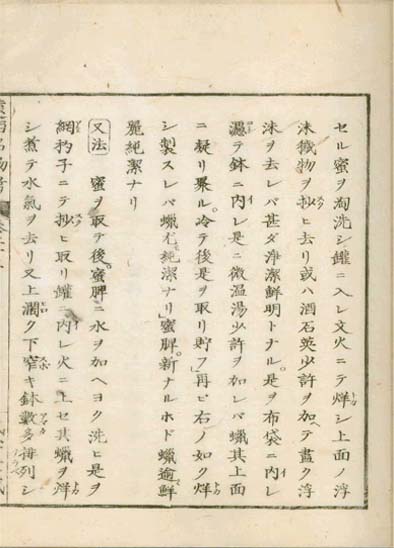 セル蜜ヲ淘洗シ罐ニ入レ文火ニテ烊シ上面ノ浮
沫穢物ヲ抄ヒ去リ或ハ酒石英少許ヲ加ヘテ盡ク浮
沫ヲ去レバ甚ダ淨潔鮮明トナル。是ヲ布袋ニ内レ
濾テ鉢ニ内レ是ニ微温湯少許ヲ加レバ蠟其上面
ニ凝リ累ル。冷テ後是ヲ取リ貯フ」再ビ右ノ如ク烊
シ製スレバ蠟尤純潔ナリ」蜜脾。新ナルホド蠟逾鮮
麗純潔ナリ
又法 蜜ヲ取テ後。蜜脾ニ水ヲ加ヘヨク洗ヒ是ヲ
網杓子ニテ抄ヒ取リ罐ニ内レ火ニ上セ其蠟ヲ烊
シ煮テ水氣ヲ去リ又上濶ク下窄キ鉢數多排列シ